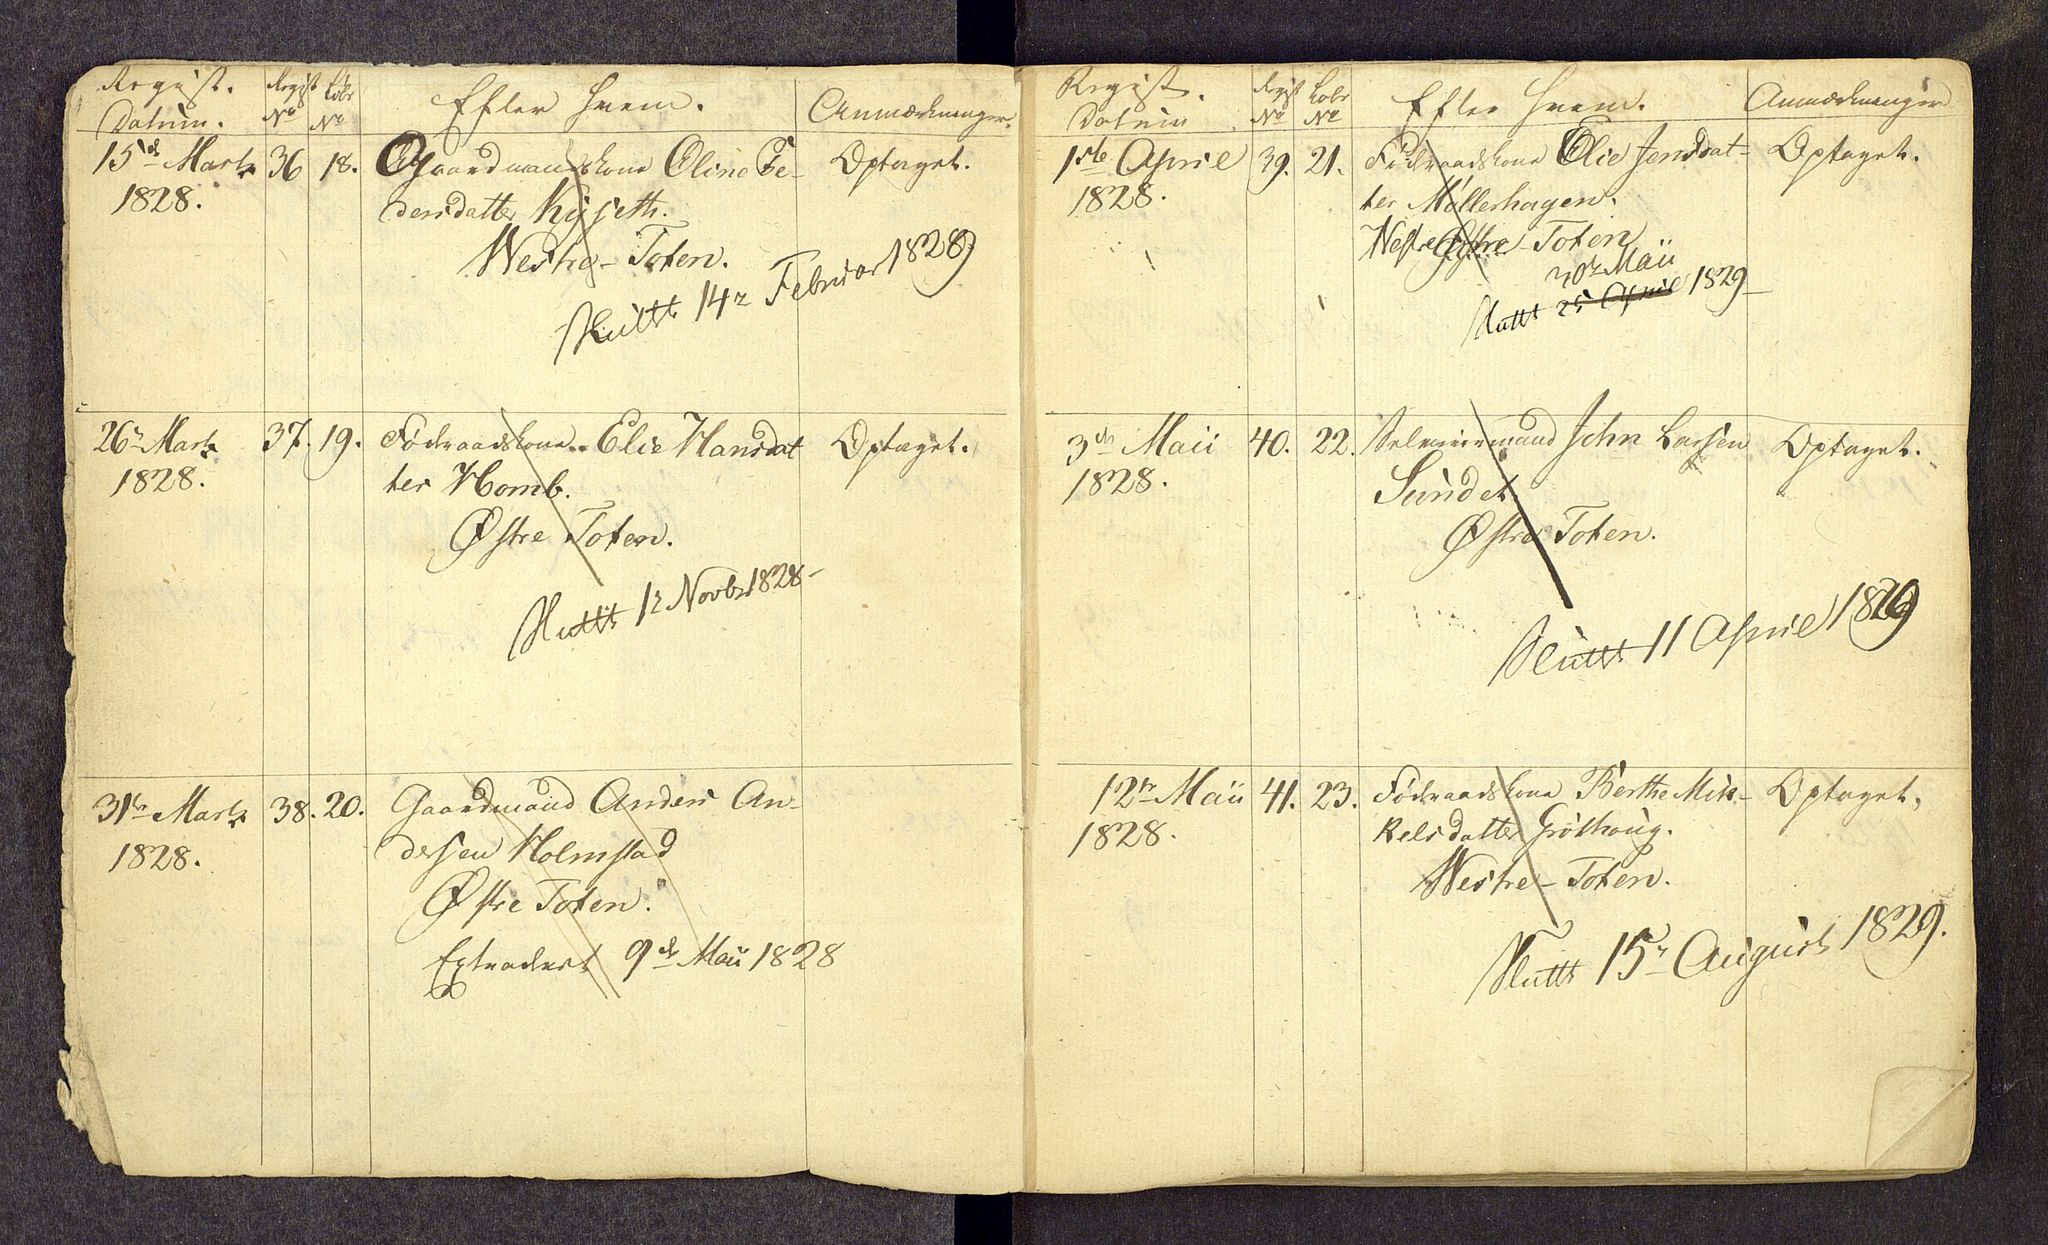 Regist. Datum.
Regist No
Løbe No
Efter hvem.
Anmærkninger.
15de Marts 1828.
36
18.
Gaardmandskone Oline Pe-
dersdatter Kyseth.
Westre-Toten.
Sluttt 14r Februar 1829
Optaget.
26r Marts 1828.
37.
19.
Föderaadskone Elie Hansdat
ter Homb.
Østre Toten.
Sluttt 1r Novbr 1828-
Optaget.
31te Marts 1828.
38.
20.
Gaardmand Anders An-
dersen Holmstad
Østre Toten.
Extraderet 9de Maii 1828
Regist. Datum
Regist No
Løbe No
Efter hvem.
Anmærkninger
1ste April 1828.
39.
21.
Föderaadskone Elie Jensdat-
ter Møllerhagen.
Westre Østre Toten
30r Maii
Sluttt 25 April 1829-
Optaget.
3de Maii 1828.
40.
22.
Selveiermand John Larsen
Sundet.
Østre Toten.
Sluttt 11 April 1829
Optaget.
12te Maii 1828.
41.
23.
Föderaadskone Berthe Mik-
kelsdatter Gröthaug.
Westre-Toten.
Sluttt 15r August 1829.
Optaget,